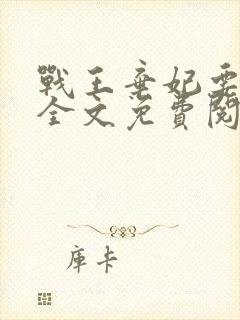 戰王棄妃要
全文免費閱
庫卡